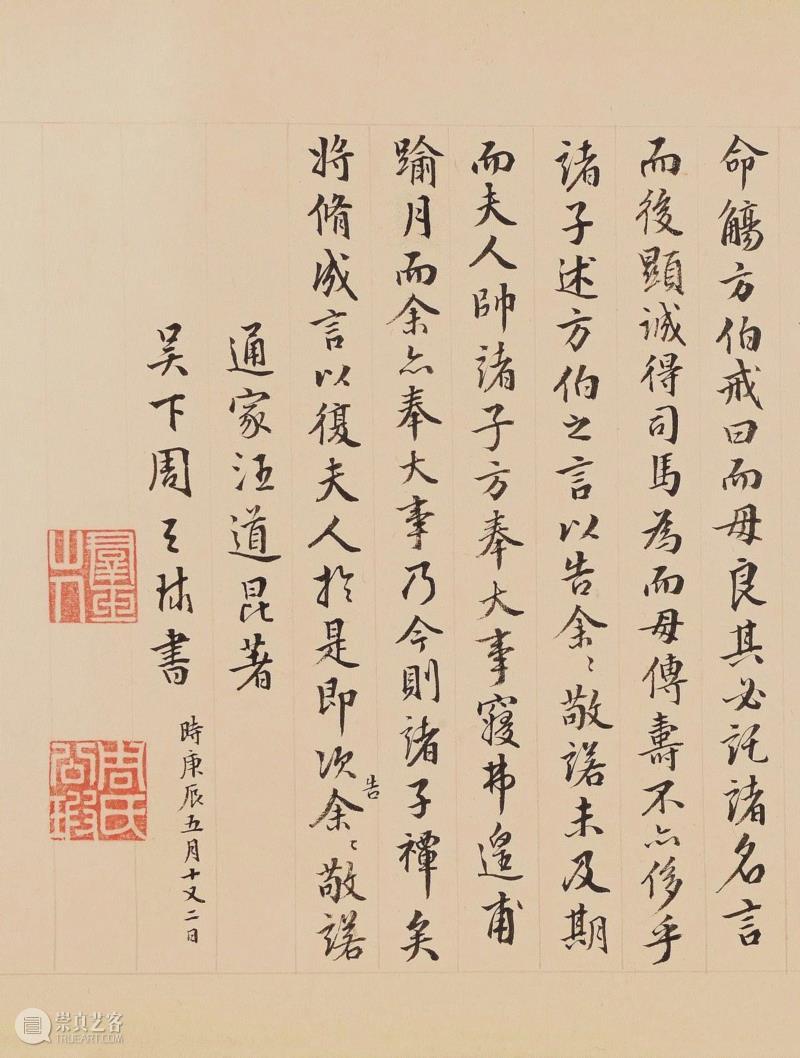 命觴方伯戒曰而母良其必託諸名言
而後顯誠得司馬為而母傳壽不亦侈乎
諸子述方伯之言以告余〻敬諾未及期
而夫人帥諸子方奉大事窆弗遑甫
踰月而余亦奉大事乃今則諸子禫矣
將脩成言以復夫人於是即次告余〻敬諾
通家汪道昆著
吳下周天球書
時庚辰五月十又二日
羣玉山人
周氏公瑕
崇真艺客
TRUEART.COM